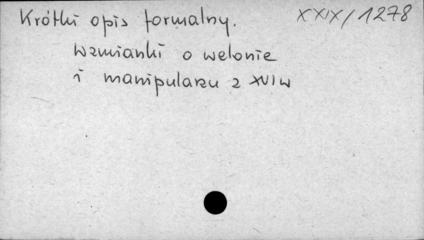 Krótki opis formalny. XXIX/1278
Wzmianki o welonie
i manipularzu z XVI w